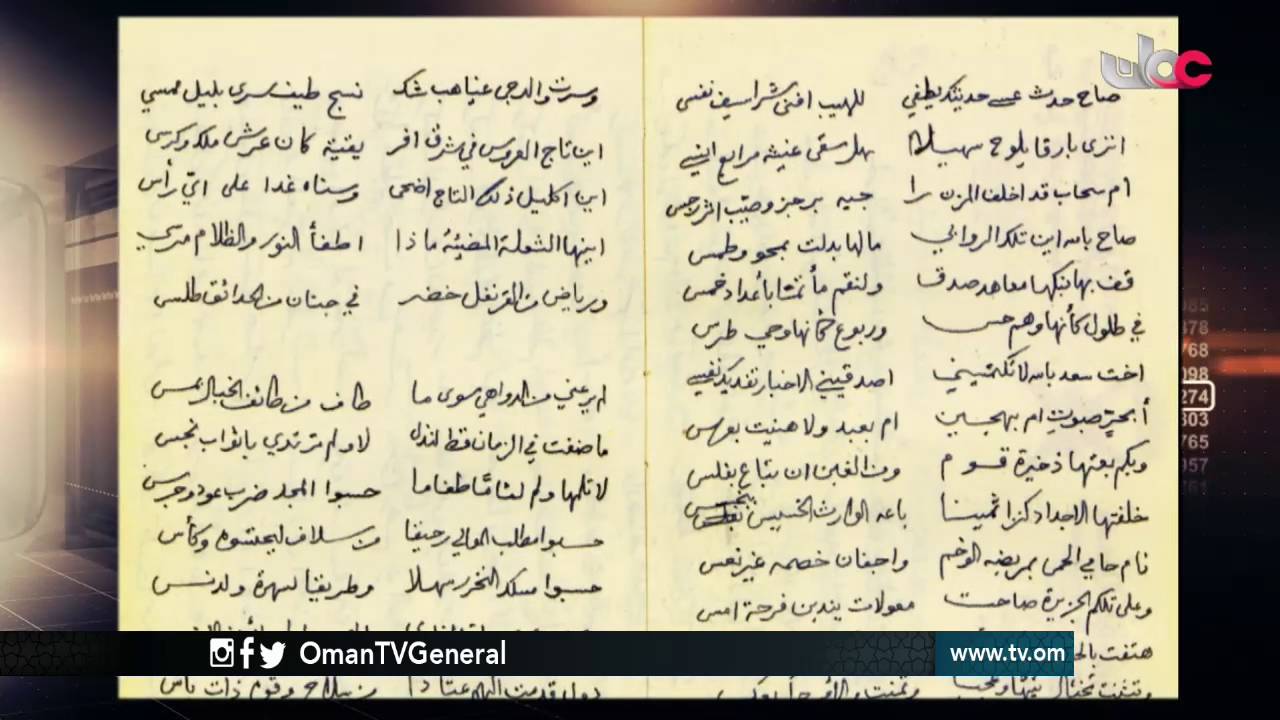 صاح حدث عسى حديثك يطفي للهيب افنى شراسيف نفسي
اترى بارقا يلوح سهيلا هل سقى غيثه مرابع
ام سحاب قد اخلف المزن را جيه برجز وصيّب
صاح بالله اين تلك الروابي مالها بدلت بمحو وطمس
قف بها نبكها معاهد صدق ولنقم مأتمًا بأعداد خمس
في طلول كأنها وهم حس وربوع كأنها وحي طرس
اخت سعد بالله لا تكتميني اصدقيني الاخبار نفديك نفسي
أبحرّ صبوتِ ام بهجين ام بعبد ولا هنيت بعرس
وبكم بعتها ذخيرة قوم ومن الغبن ان يباع بفلس
خلفتها الاجداد كنزا ثمينا باعه الوارث الخسيس ببخس
نام حامي الحمى بمربضه الوخم واجفان خصمه غير نعس
وعلى تلكم الجزيرة صاحت معولات يندبن فرحة امس
هتفت
وتثنت تختال تيها
وسرت والدجى غياهب شك نسج طيف سرى بليل ممسي
اين تاج العروس في شرق افر يقية كان عرش ملك وكرسي
اين اكليل ذلك التاج اضحى وسناه غدا على ايّ رأس
ايها الشعلة المضيئة ماذا اطفأ النور والظلام مرسي
ورياض من القرنفل خضر في جنان من الحدائق طلس
لم يرعني من الدواهي سوى ما طاف من طائف الخيال بمس
ما ضفت في الزمان قط لنذل لا ولم ترتدي باثواب نجس
لا تلمها ولم لئامًا طغاما حسبوا المجد ضرب عود وجرس
حسبوا مطلب المعالي رحيقا من سلاف ليحتسوه وكأس
حسبوا مسلك التحرر سهلا وطريقا لسهرة ولدنس
من سلاح وقوم ذات بأس
ubc
OmanTVGeneral
www.tv.om
985
878
768
098
274
303
765
957
761